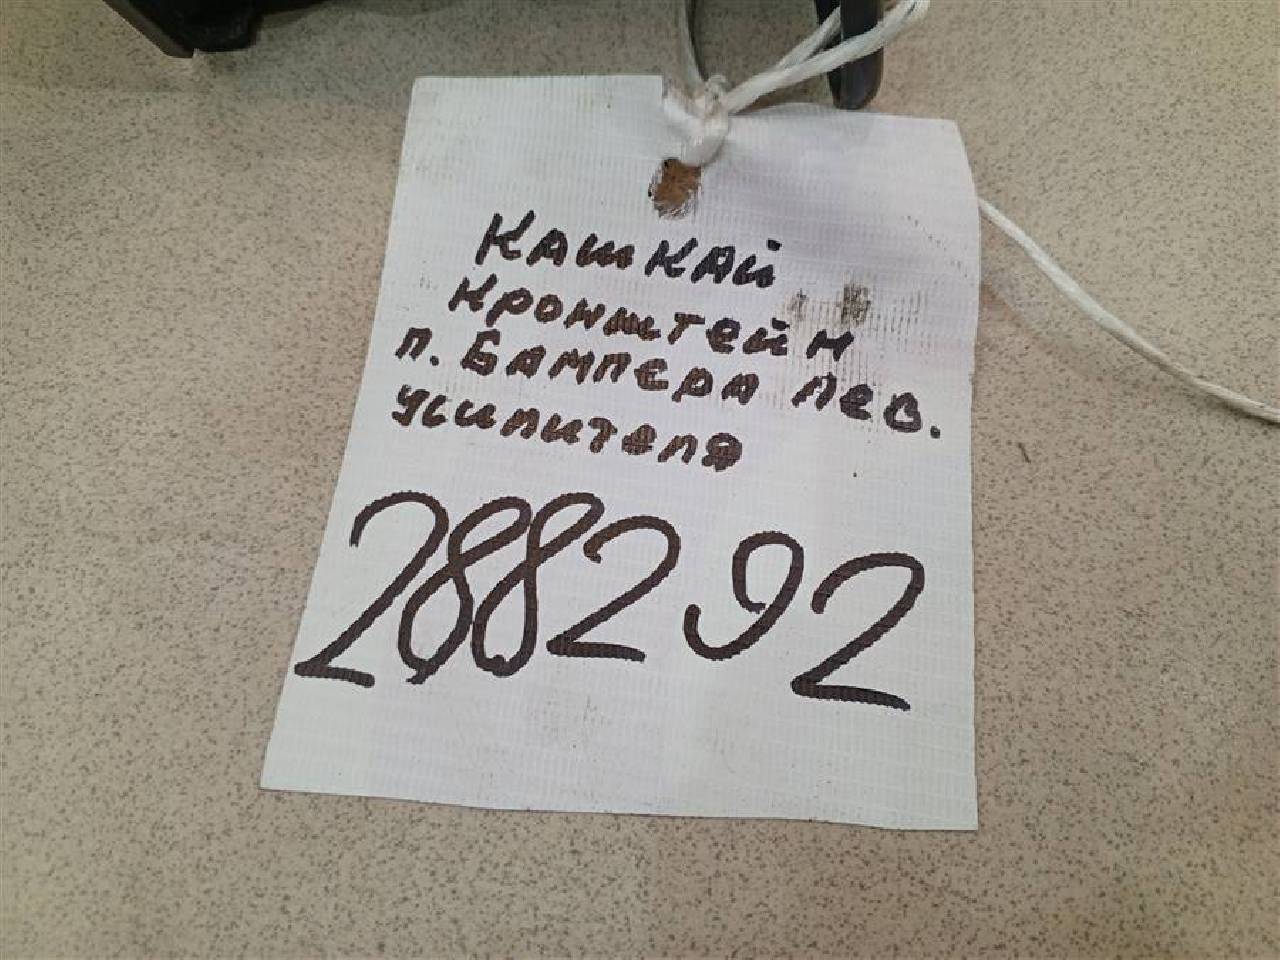 Кашкай
Кронштейн
п. Бампера лев.
усилителя
288292